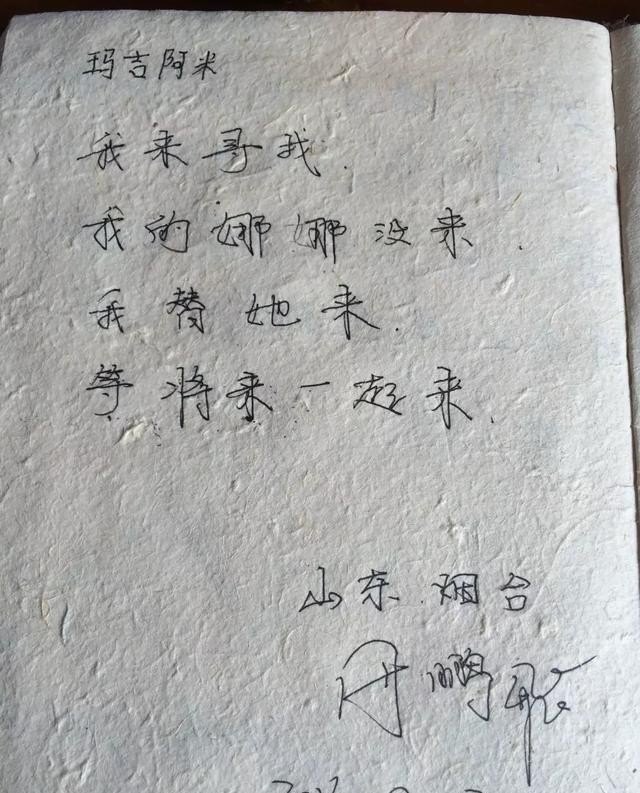 玛吉阿米
我来寻我.
我的娜娜没来.
我替她来.
等将来一起来.
山东烟台
鹏